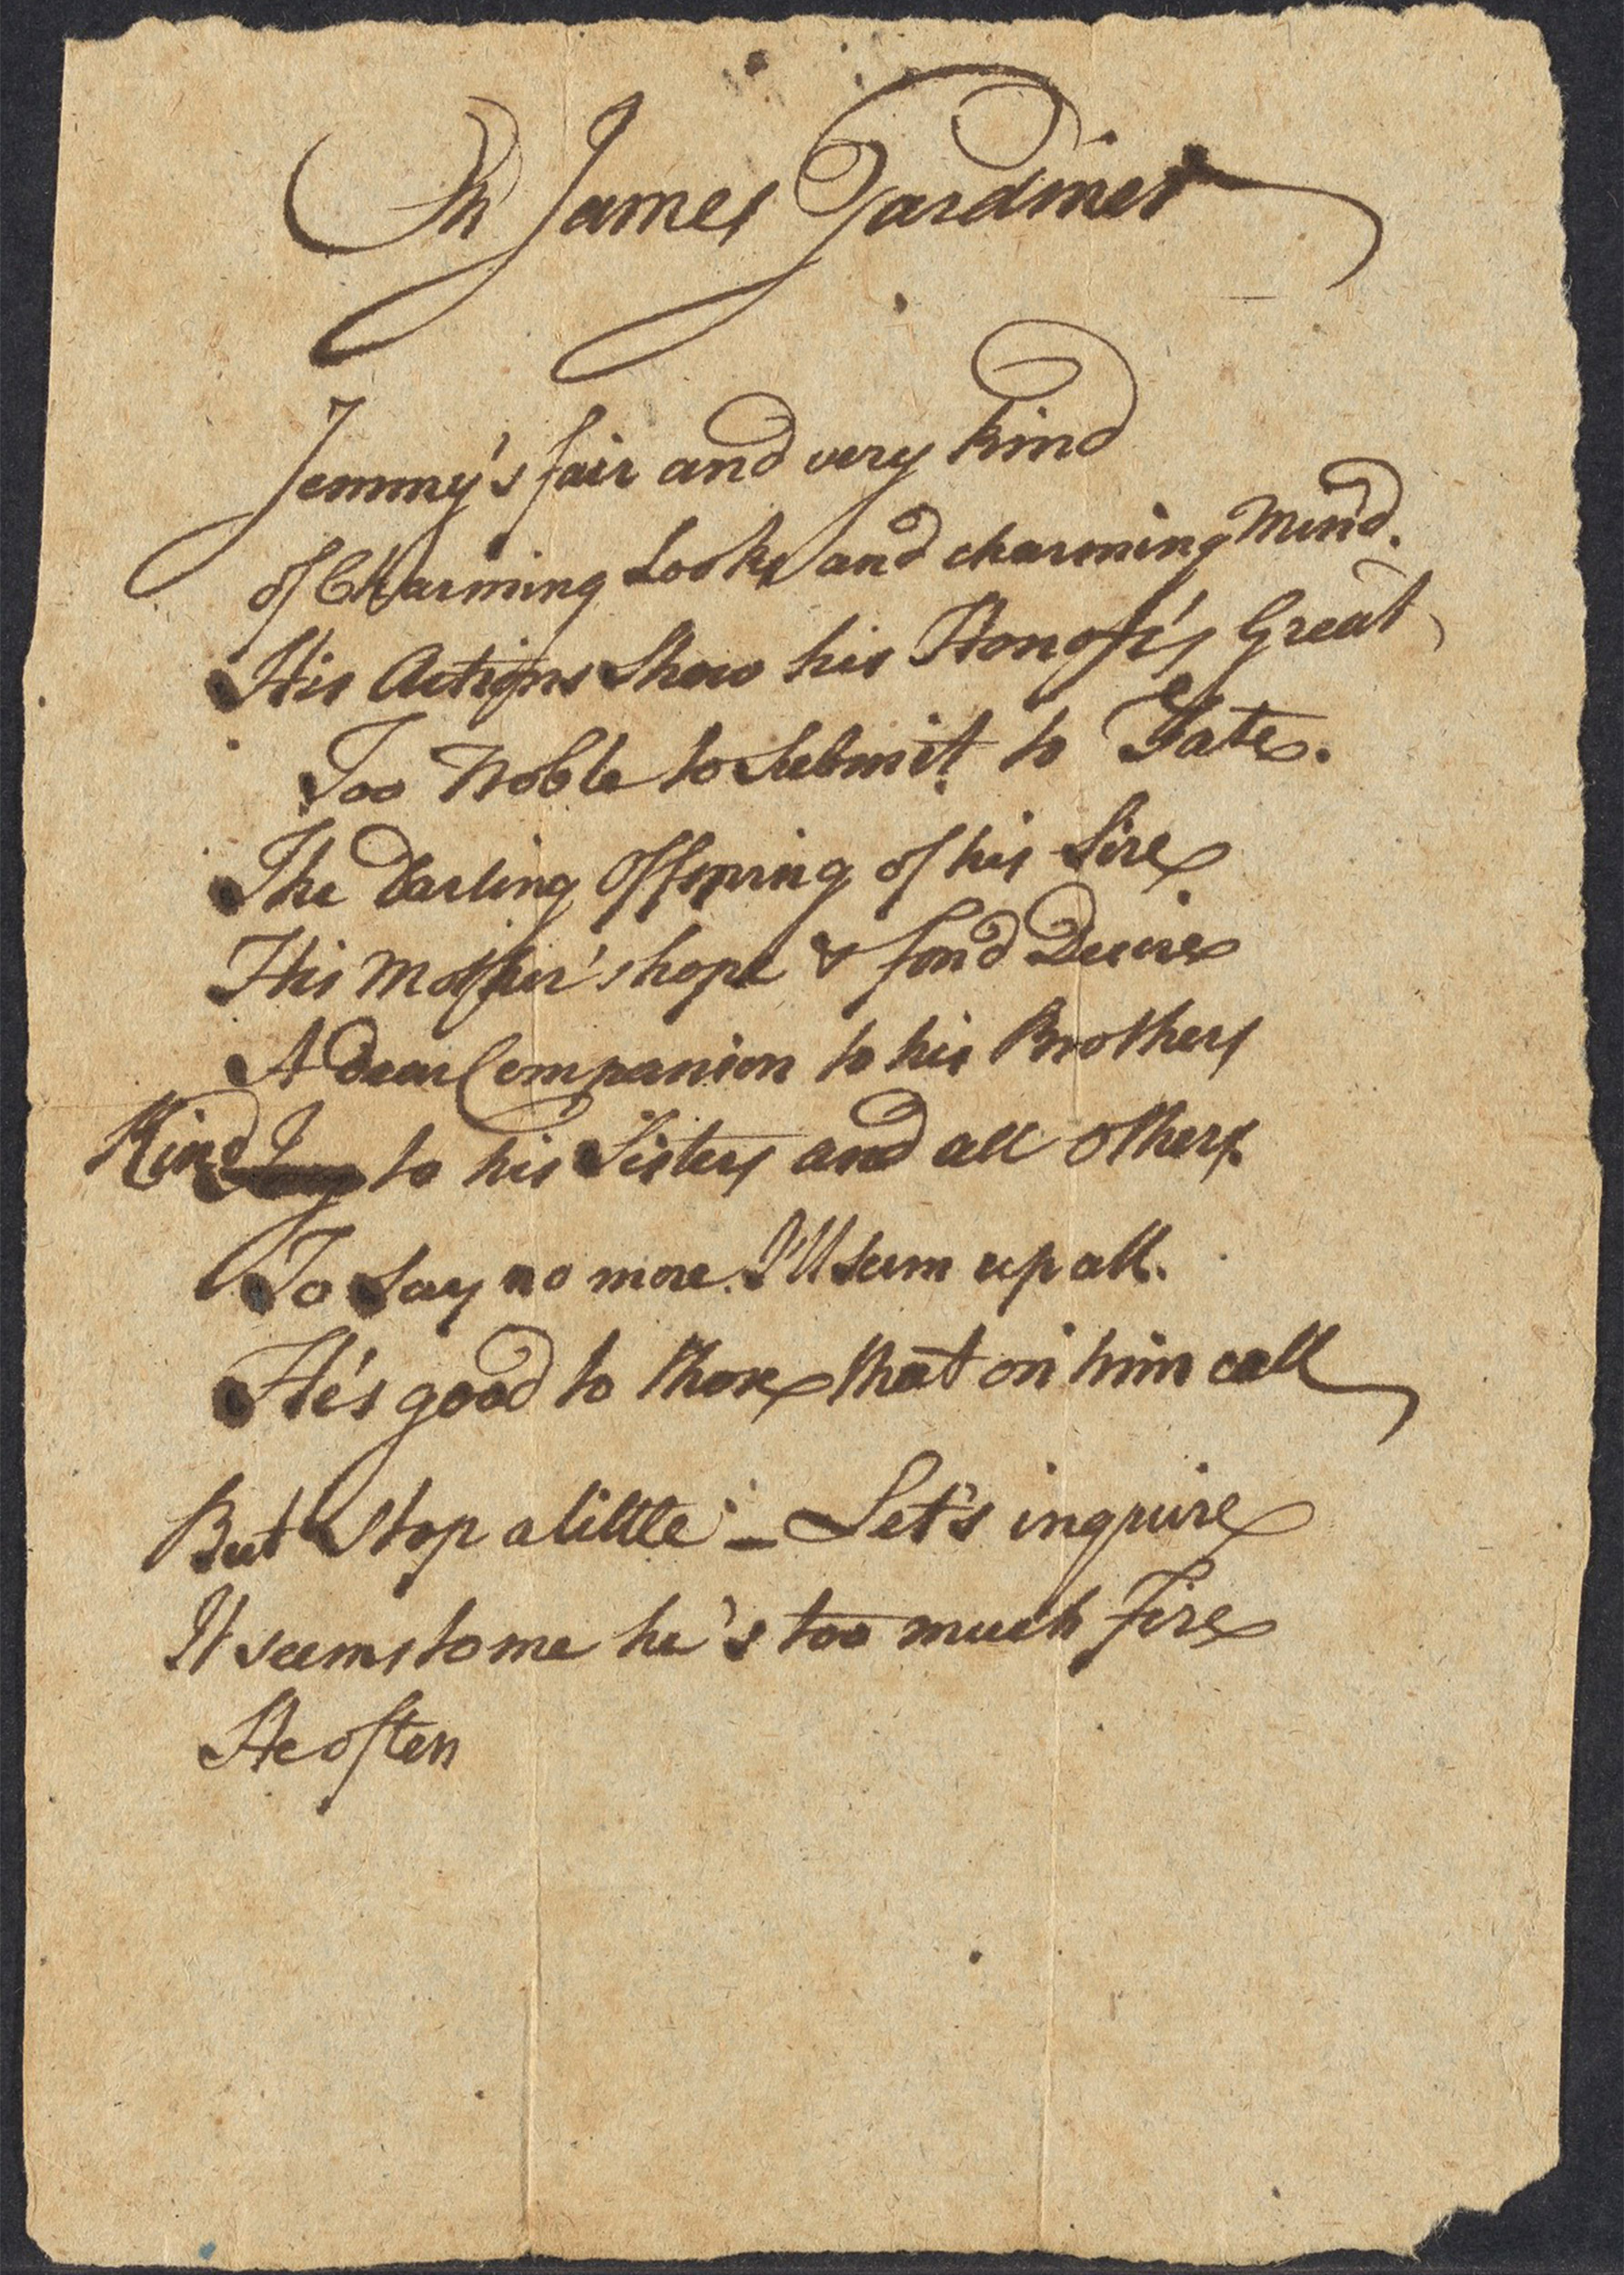 On James Gardiner
Jemmy's fair and very kind
of Charming Looks and charming Mind.
His Actions Show his Honor's Great,
Too Noble to Submit to Fate.
The Darling Offspring of his Sire
His Mother's hope & fond Desire
A dear Companion to his Brothers
Kind to his Sisters and all others.
To Say no more. I'll sum up all.
He's good to those that on him call
But Stop a little – Let's inquire
It seems to me he's too much Fire
He often